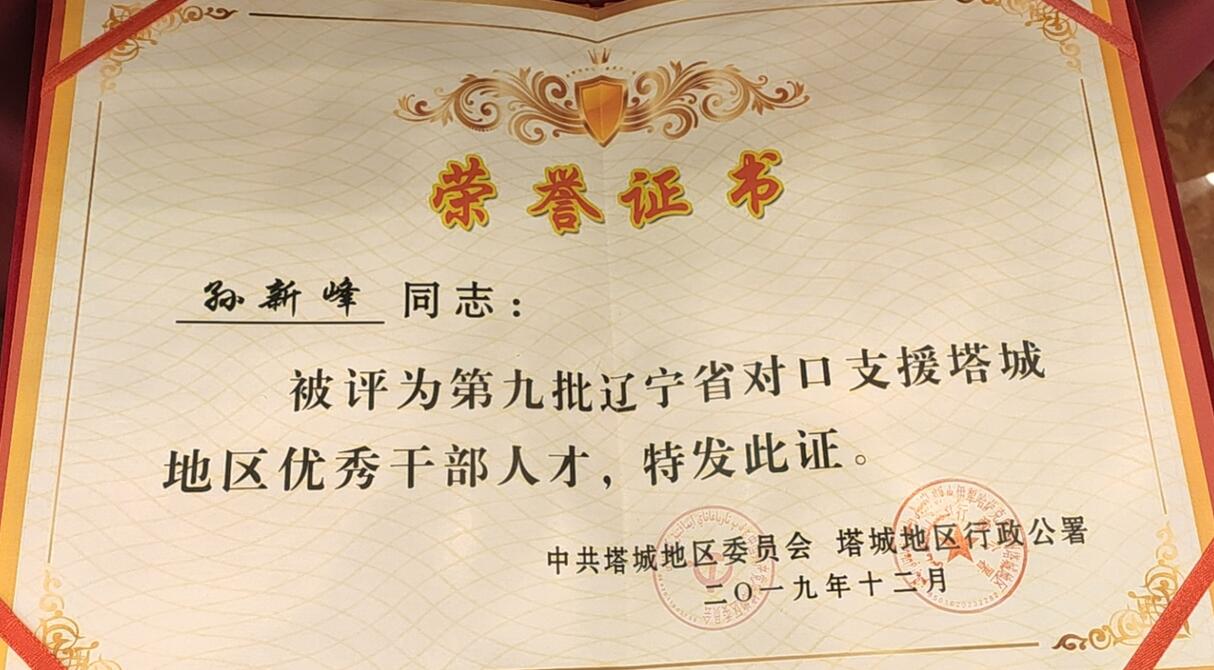 荣誉证书
孙新峰 同志：
被评为第九批辽宁省对口支援塔城
地区优秀干部人才，特发此证。
中共塔城地区委员会 塔城地区行政公署
二〇一九年十二月